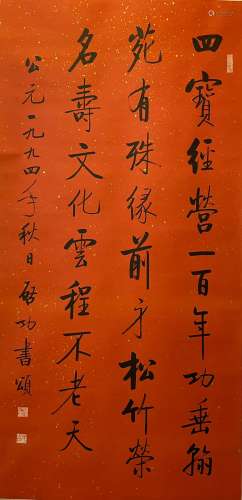 四寶經營一百年功垂翰
苑有殊緣前身松竹榮
名壽文化雲程不老天
公元一九九四年秋日啟功書頌